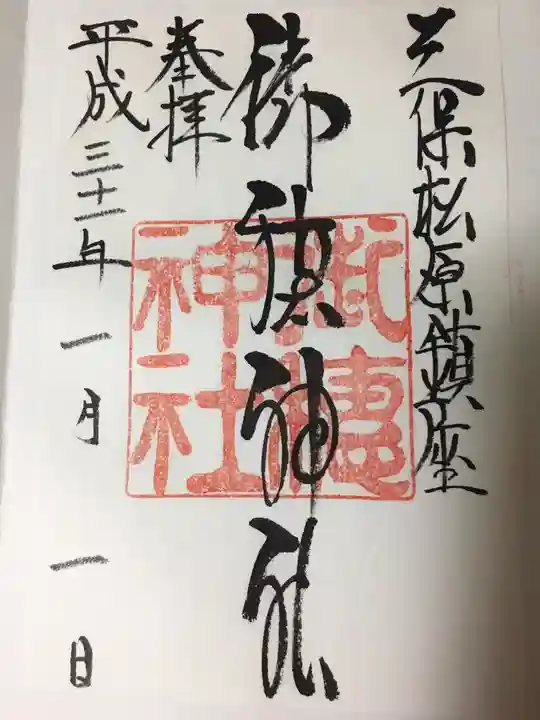 三保松原鎮座
御穂神社
奉拝
平成三十一年一月一日
御穂
神社